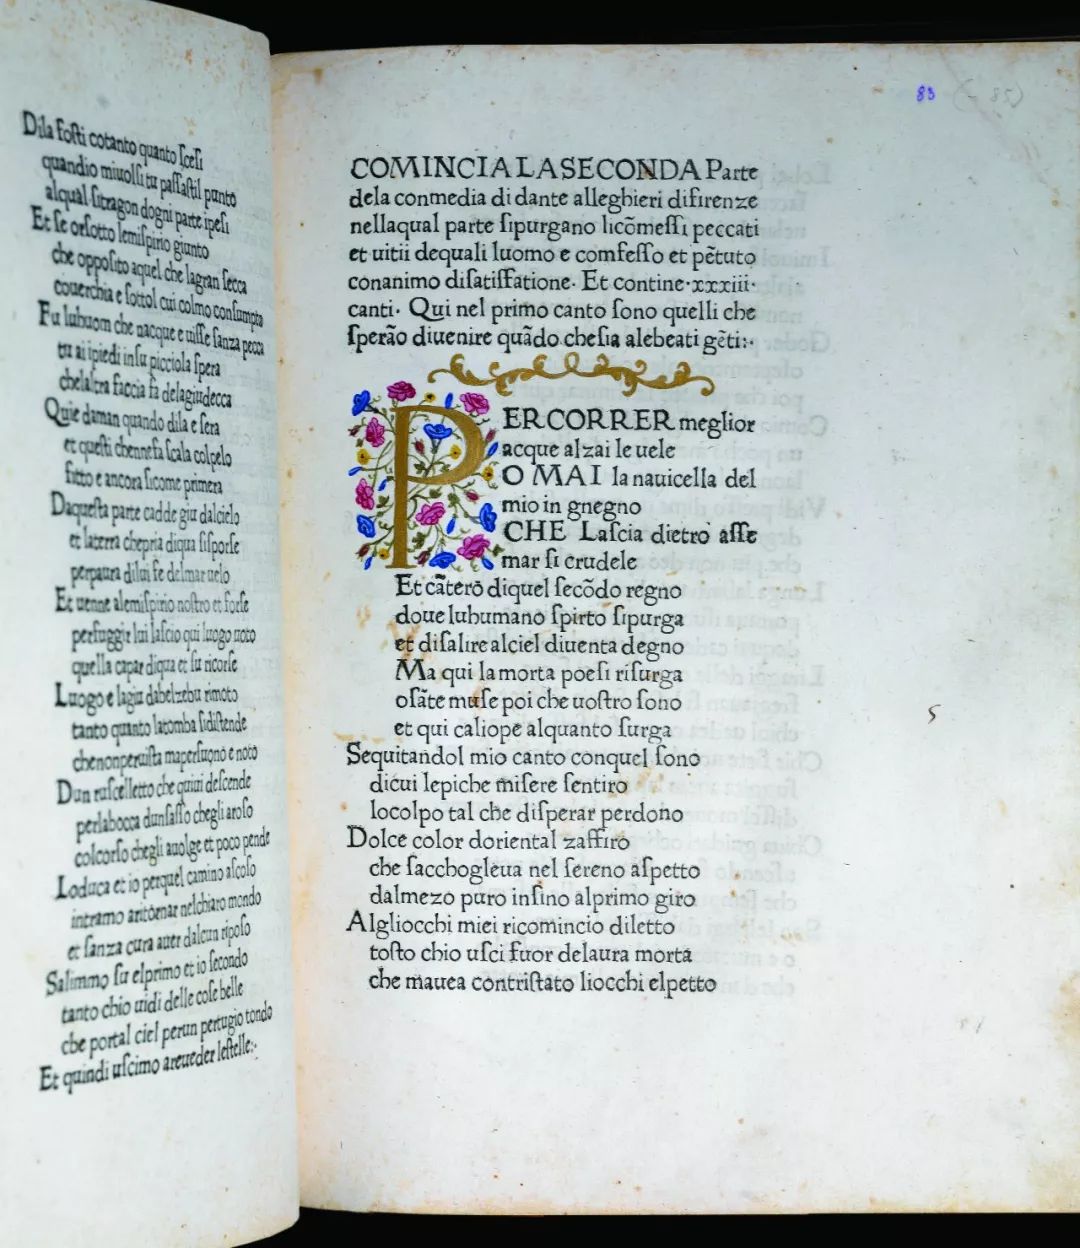 Dila fosti cotanto quanto scesi
quandio miuolsi tu passastil punto
alqual sitragon dogni parte ipesi
Et se orsotto lemispirio giunto
che opposito aquel che lagran secca
couerchia e sottol cui colmo consumpta
Fu luhuom che nacque e uisse sanza pecca
tu ai ipiedi insu picciola spera
chelaltra faccia fa delagiudecca
Quie daman quando dila e sera
et questi chennefa scala colpelo
fitto e ancora sicome primera
Daquesta parte cadde giu dalcielo
et laterra chepria diqua sisporse
perpaura dilui fe delmar uelo
Et uenne alemispirio nostro et forse
perfuggir lui lascio qui luogo uoto
quella capar diqua et su ricorse
Luogo e lagiu dabelzebu rimoto
tanto quanto latomba sidistende
chenonperuista mapersuono e noto
Dun ruscelletto che quiui descende
perlabocca dunsasso chegli aroso
colcorso chegli auolge et poco pende
Loduca et io perquel camino ascoso
intramo aritornar nelchiaro mondo
et sanza cura auer dalcun riposo
Salimmo su elprimo et io secondo
tanto chio uidi delle cose belle
che portal ciel perun pertugio tondo
Et quindi uscimo areueder lestelle:·
83 (- 85)
COMINCIA LA SECONDA Parte
dela conmedia di dante alleghieri difirenze
nellaqual parte sipurgano licōmessi peccati
et uitii dequali luomo e comfesso et pētuto
conanimo disatisfatione· Et contine·xxxiii·
canti· Qui nel primo canto sono quelli che
sperāo diuenire quādo chesia alebeati gēti:·
PER CORRER meglior
acque alzai le uele
O MAI la nauicella del
mio in gnegno
CHE Lascia dietro asse
mar si crudele
Et cāterò diquel secōdo regno
doue luhumano spirto sipurga
et disalire alciel diuenta degno
Ma qui la morta poesi risurga
osāte muse poi che uostro sono
et qui caliope alquanto surga
Sequitandol mio canto conquel sono
dicui lepiche misere sentiro
locolpo tal che disperar perdono
Dolce color doriental zaffiro
che sacchogleua nel sereno aspetto
dalmezo puro insino alprimo giro
Algliocchi miei ricomincio diletto
tosto chio usci fuor delaura morta
che mauea contristato liocchi elpetto
5